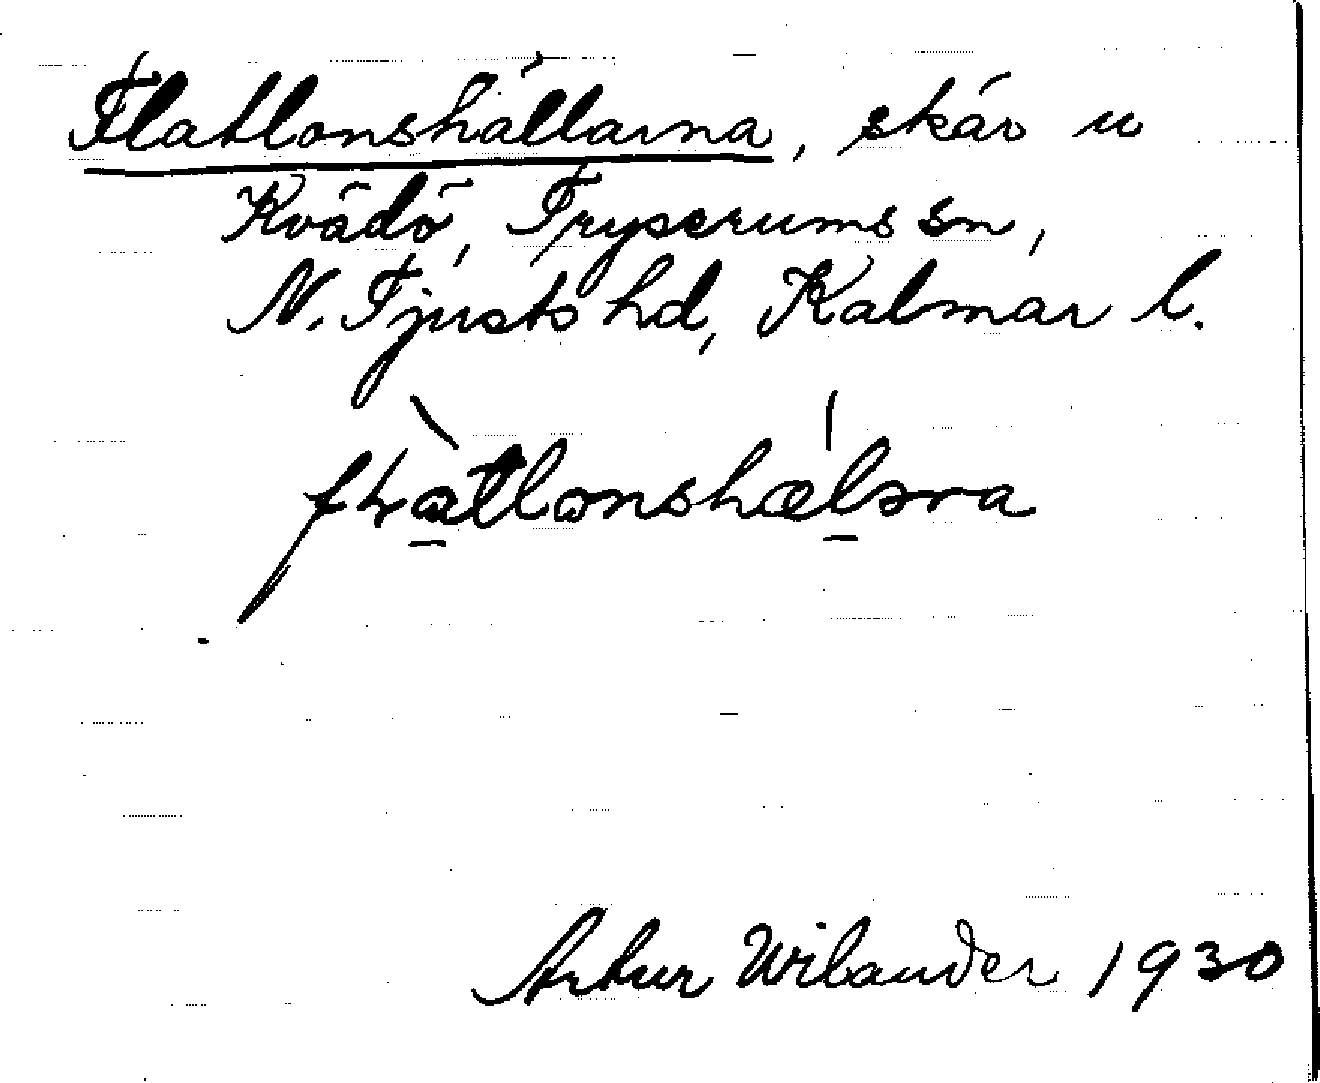 Flatlonshällarna, skär u
Kvädö, Tryserums sn,
N. Tjusts hd, Kalmar l.
Artur Wilander 1930